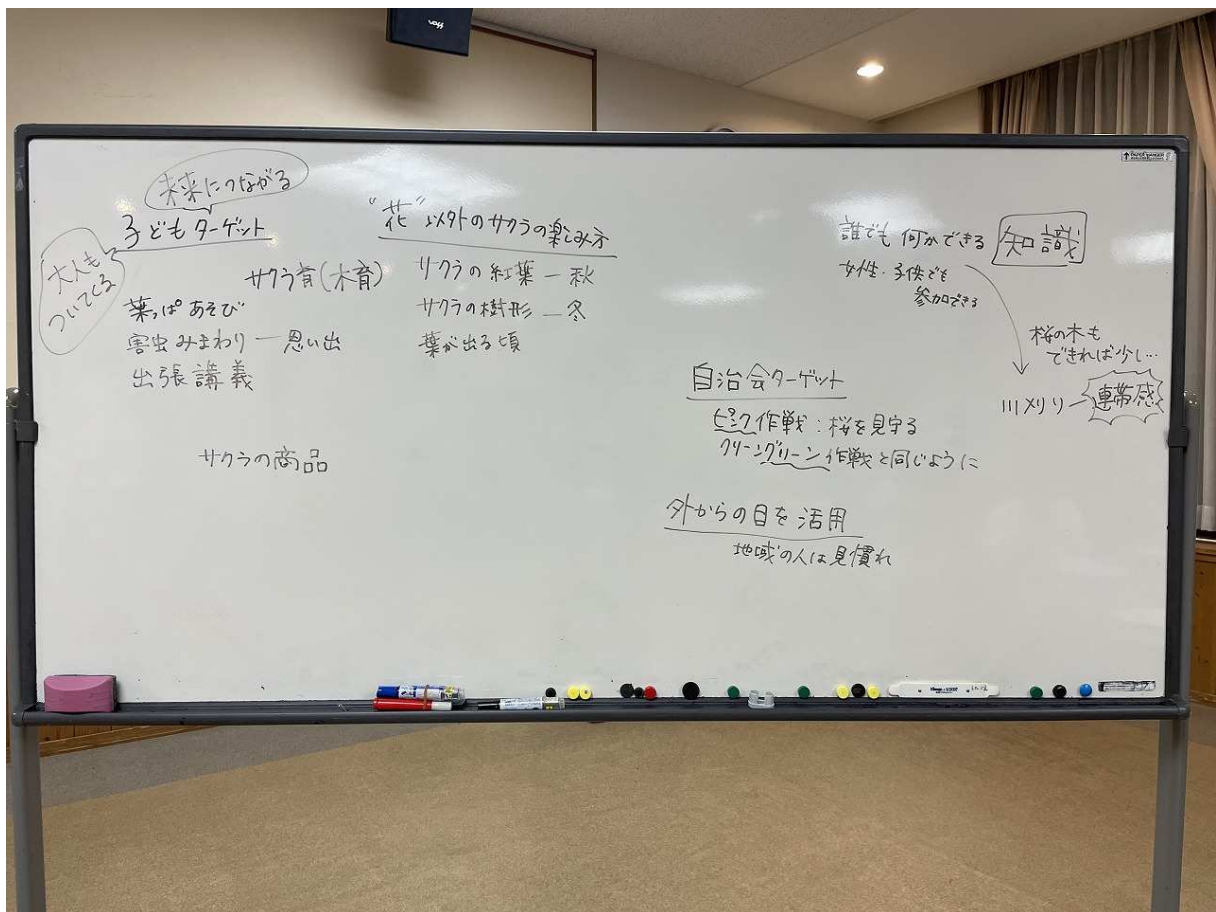 未来につながる
子どもターゲット
大人も
ついてくる
サクラ育(木育)
葉っぱあそび
害虫みまわり ― 思い出
出張講義
サクラの商品
"花"以外のサクラの楽しみ方
サクラの紅葉 ― 秋
サクラの樹形 ― 冬
葉が出る頃
誰でも何かできる 知識
女性・子供でも
参加できる
桜の木も
できれば少し…
川メリリ ― 連帯感
自治会ターゲット
ピンク作戦:桜を見守る
クリーングリーン作戦と同じように
外からの目を活用
地域の人は見慣れ